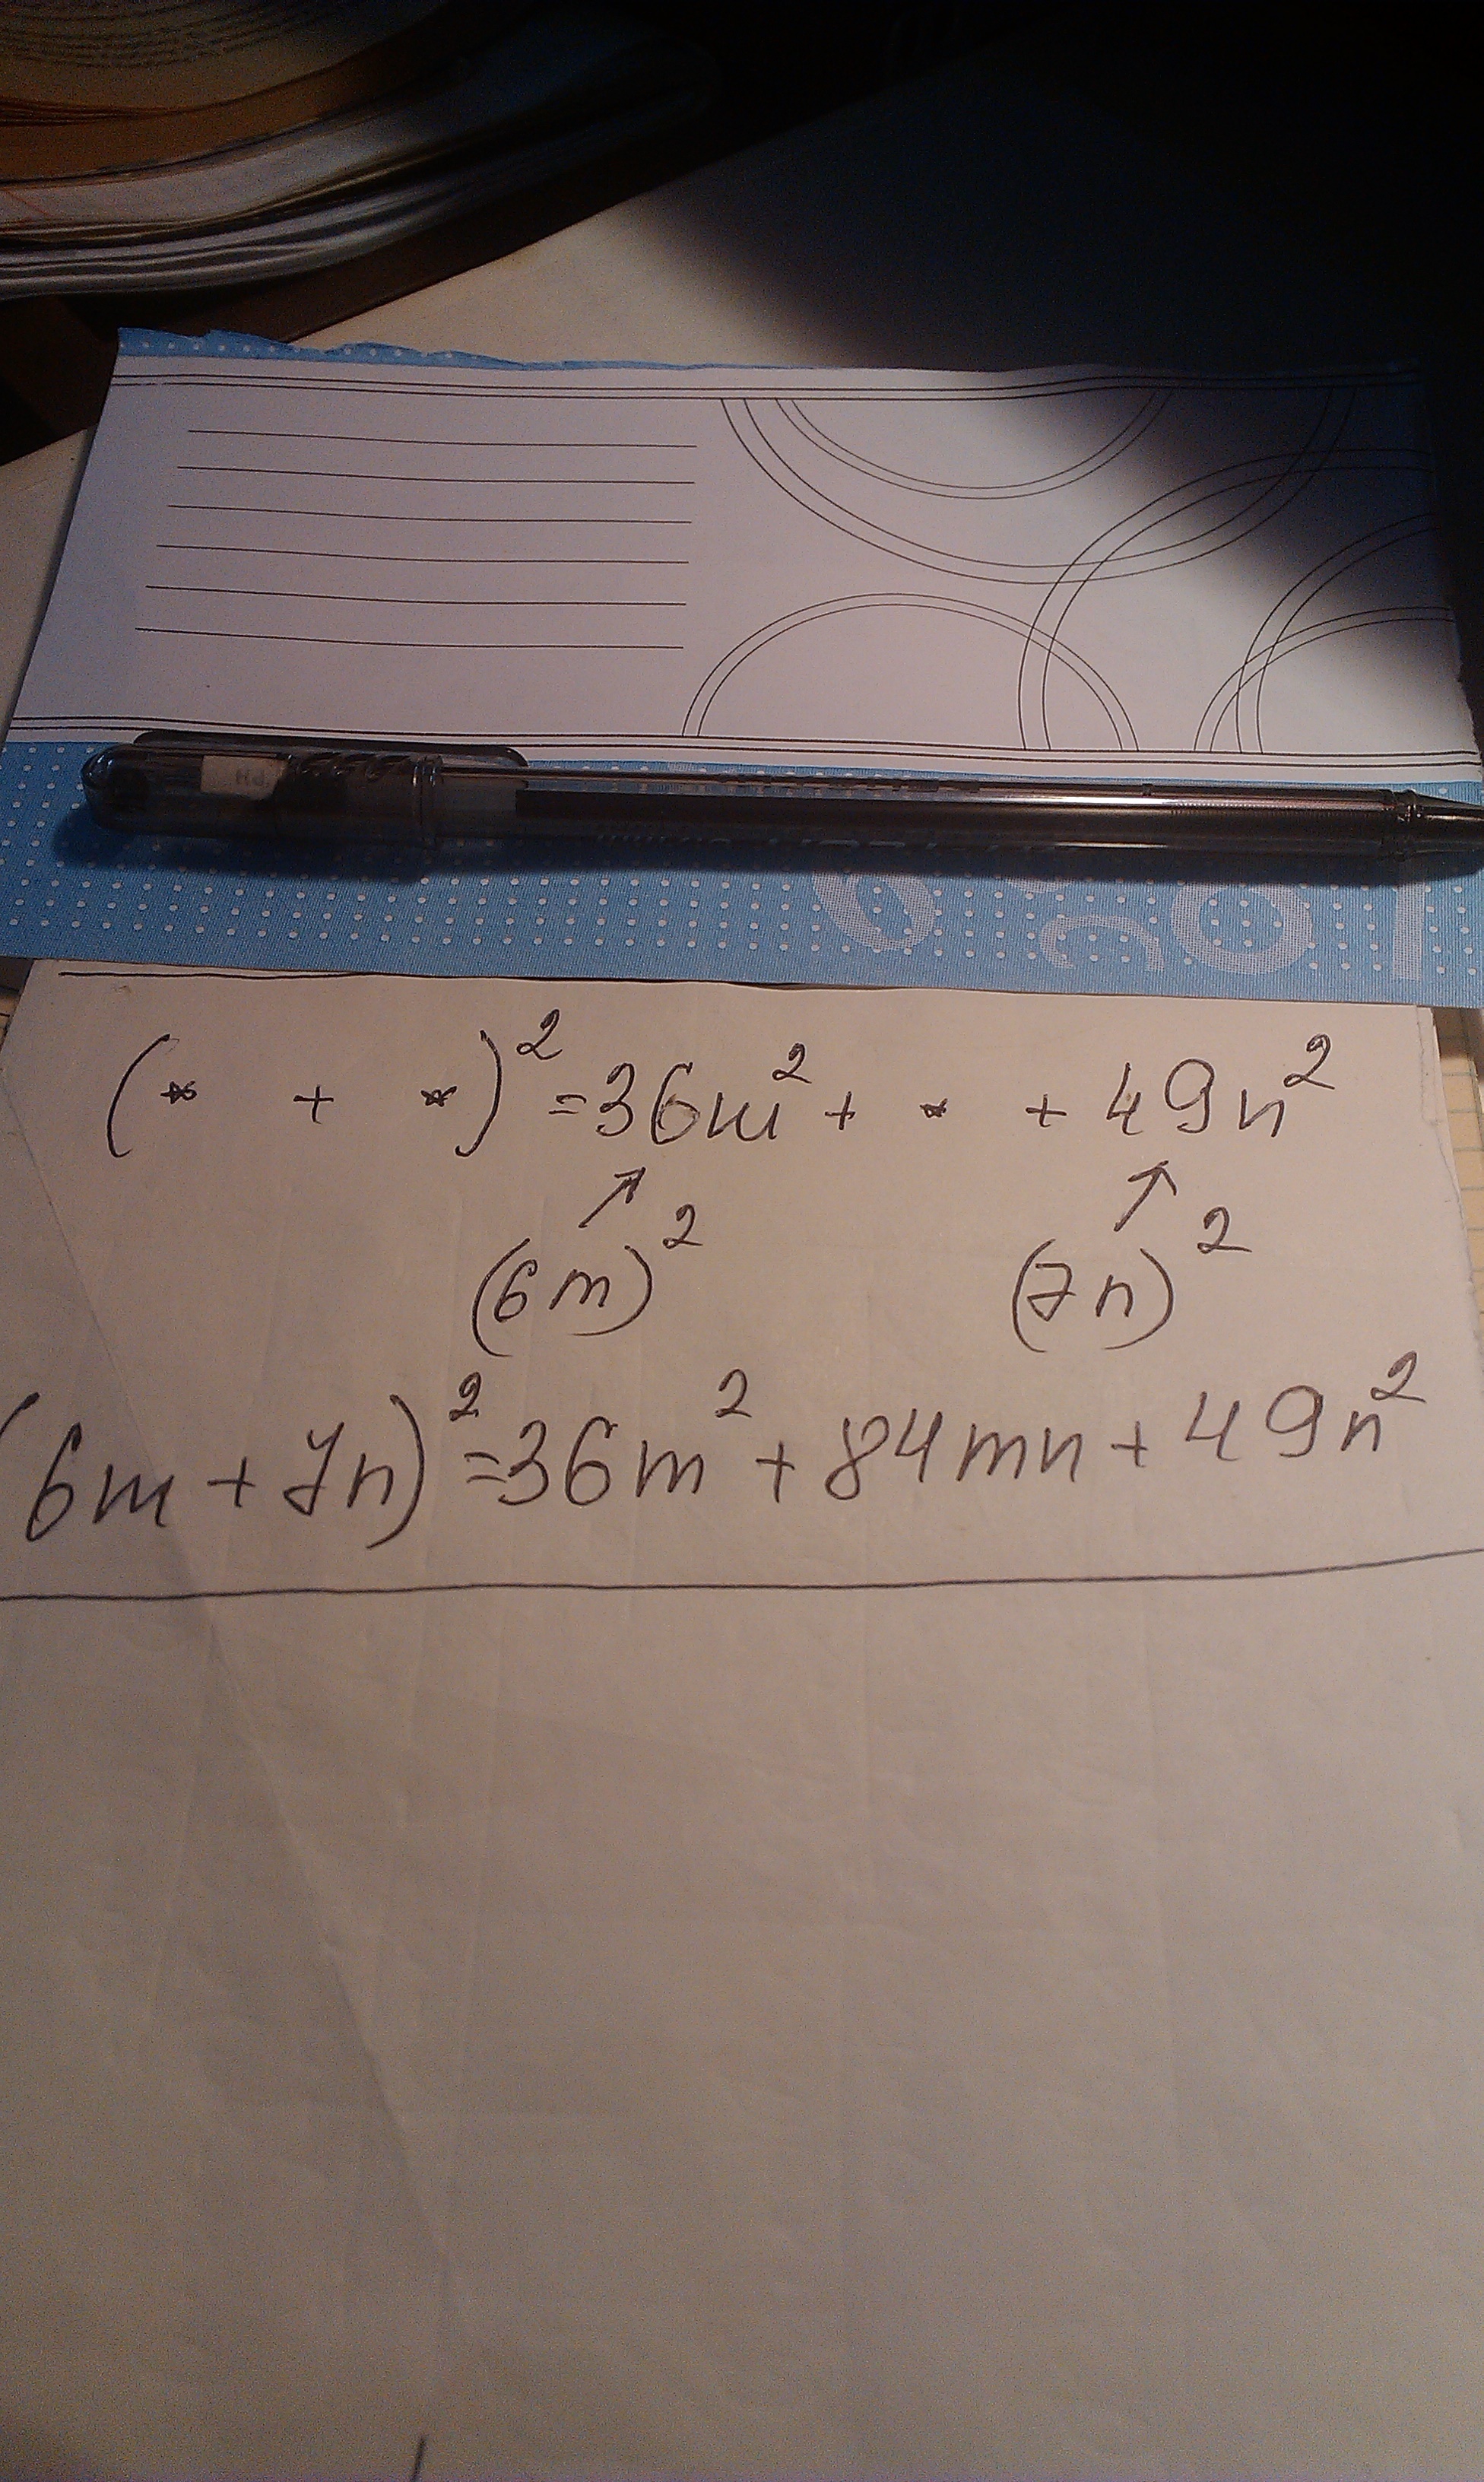 (* + *)² = 36m² + * + 49n²
(6m)² (7n)²
(6m + 7n)² = 36m² + 84mn + 49n²